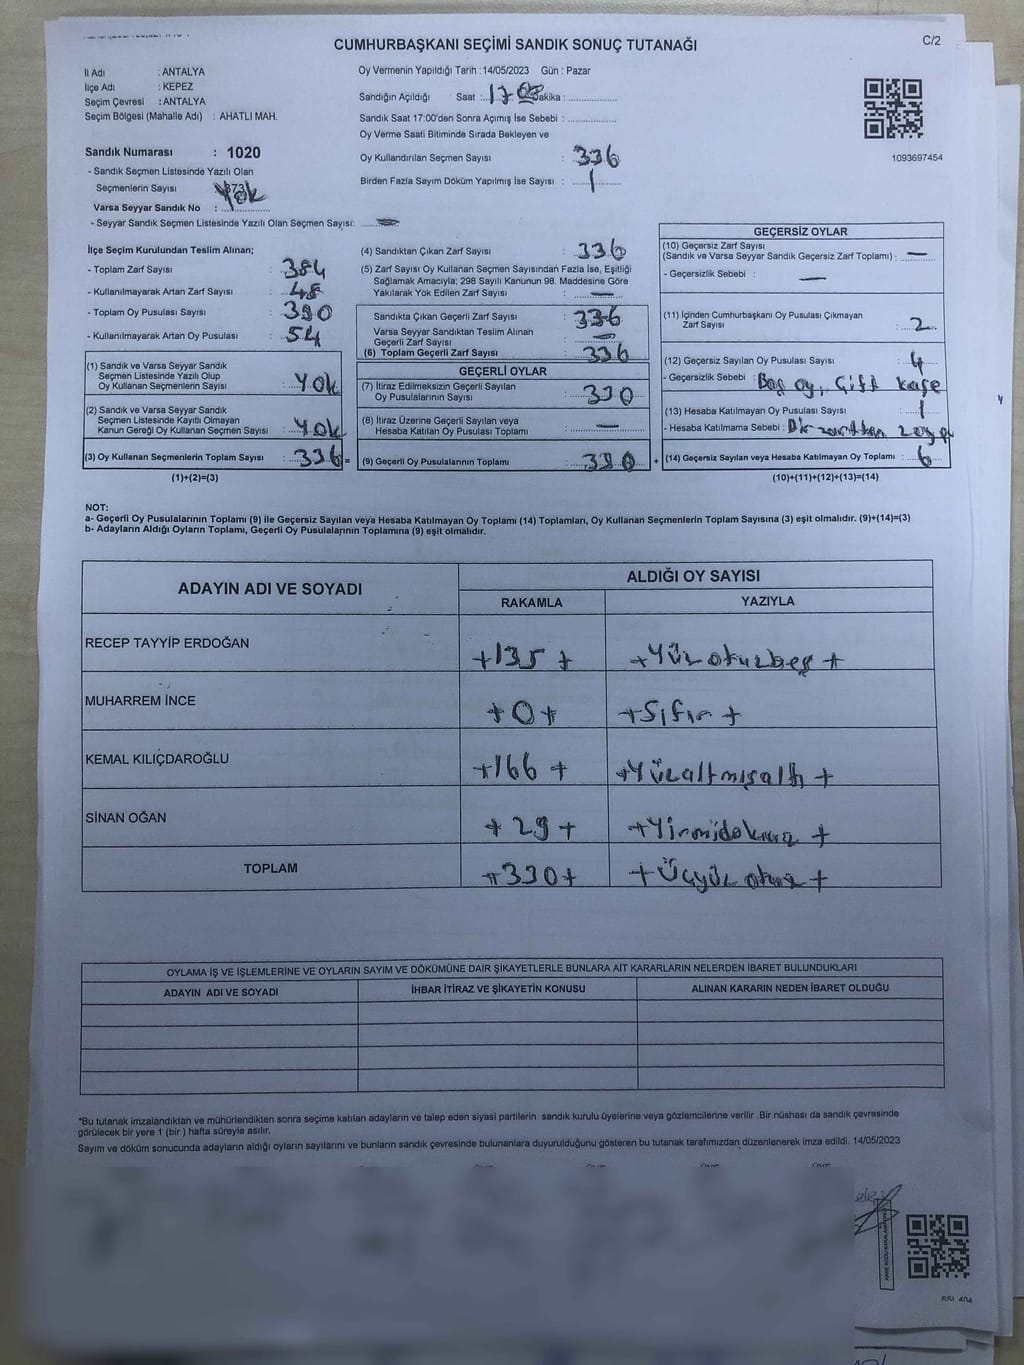 CUMHURBAŞKANI SEÇİMİ SANDIK SONUÇ TUTANAĞI
C/2
İl Adı : ANTALYA
İlçe Adı : KEPEZ
Seçim Çevresi : ANTALYA
Seçim Bölgesi (Mahalle Adı) : AHATLI MAH.
Sandık Numarası : 1020
- Sandık Seçmen Listesinde Yazılı Olan
Seçmenlerin Sayısı
Varsa Seyyar Sandık No : Yok
- Seyyar Sandık Seçmen Listesinde Yazılı Olan Seçmen Sayısı:
Oy Vermenin Yapıldığı Tarih : 14/05/2023 Gün : Pazar
Sandığın Açıldığı Saat : 17 Dakika :
Sandık Saat 17:00'den Sonra Açımış İse Sebebi :
Oy Verme Saati Bitiminde Sırada Bekleyen ve
Oy Kullandırılan Seçmen Sayısı : 336
Birden Fazla Sayım Döküm Yapılmış İse Sayısı : 1
1093697454
İlçe Seçim Kurulundan Teslim Alınan;
- Toplam Zarf Sayısı : 384
- Kullanılmayarak Artan Zarf Sayısı : 48
- Toplam Oy Pusulası Sayısı : 390
- Kullanılmayarak Artan Oy Pusulası : 54
(1) Sandık ve Varsa Seyyar Sandık
Seçmen Listesinde Yazılı Olup
Oy Kullanan Seçmenlerin Sayısı : Yok
(2) Sandık ve Varsa Seyyar Sandık
Seçmen Listesinde Kayıtlı Olmayan
Kanun Gereği Oy Kullanan Seçmen Sayısı : Yok
(3) Oy Kullanan Seçmenlerin Toplam Sayısı : 336 =
(1)+(2)=(3)
(4) Sandıktan Çıkan Zarf Sayısı : 336
(5) Zarf Sayısı Oy Kullanan Seçmen Sayısından Fazla İse, Eşitliği
Sağlamak Amacıyla; 298 Sayılı Kanunun 98. Maddesine Göre
Yakılarak Yok Edilen Zarf Sayısı : —
Sandıkta Çıkan Geçerli Zarf Sayısı : 336
Varsa Seyyar Sandıktan Teslim Alınan
Geçerli Zarf Sayısı : —
(6) Toplam Geçerli Zarf Sayısı : 336
GEÇERLİ OYLAR
(7) İtiraz Edilmeksizin Geçerli Sayılan
Oy Pusulalarının Sayısı : 330
(8) İtiraz Üzerine Geçerli Sayılan veya
Hesaba Katılan Oy Pusulası Toplamı : —
(9) Geçerli Oy Pusulalarının Toplamı : 330 +
GEÇERSİZ OYLAR
(10) Geçersiz Zarf Sayısı
(Sandık ve Varsa Seyyar Sandık Geçersiz Zarf Toplamı) : —
- Geçersizlik Sebebi : —
(11) İçinden Cumhurbaşkanı Oy Pusulası Çıkmayan
Zarf Sayısı : 2
(12) Geçersiz Sayılan Oy Pusulası Sayısı : 4
- Geçersizlik Sebebi : Boş oy, Çift kaşe
(13) Hesaba Katılmayan Oy Pusulası Sayısı : 1
- Hesaba Katılmama Sebebi : Bir zarftan
(14) Geçersiz Sayılan veya Hesaba Katılmayan Oy Toplamı : 6
(10)+(11)+(12)+(13)=(14)
NOT:
a- Geçerli Oy Pusulalarının Toplamı (9) ile Geçersiz Sayılan veya Hesaba Katılmayan Oy Toplamı (14) Toplamları, Oy Kullanan Seçmenlerin Toplam Sayısına (3) eşit olmalıdır. (9)+(14)=(3)
b- Adayların Aldığı Oyların Toplamı, Geçerli Oy Pusulalarının Toplamına (9) eşit olmalıdır.
ADAYIN ADI VE SOYADI
ALDIĞI OY SAYISI
RAKAMLA YAZIYLA
RECEP TAYYİP ERDOĞAN +135+ +Yüzotuzbeş+
MUHARREM İNCE +0+ +Sıfır+
KEMAL KILIÇDAROĞLU +166+ +Yüzaltmışaltı+
SİNAN OĞAN +29+ +Yirmidokuz+
TOPLAM +330+ +Üçyüz otuz+
OYLAMA İŞ VE İŞLEMLERİNE VE OYLARIN SAYIM VE DÖKÜMÜNE DAİR ŞİKAYETLERLE BUNLARA AİT KARARLARIN NELERDEN İBARET BULUNDUKLARI
ADAYIN ADI VE SOYADI İHBAR İTİRAZ VE ŞİKAYETİN KONUSU ALINAN KARARIN NEDEN İBARET OLDUĞU
*Bu tutanak imzalandıktan ve mühürlendikten sonra seçime katılan adayların ve talep eden siyasi partilerin sandık kurulu üyelerine veya gözlemcilerine verilir .Bir nüshası da sandık çevresinde
görülecek bir yere 1 (bir ) hafta süreyle asılır.
Sayım ve döküm sonucunda adayların aldığı oyların sayılarını ve bunların sandık çevresinde bulunanlara duyurulduğunu gösteren bu tutanak tarafımızdan düzenlenerek imza edildi. 14/05/2023